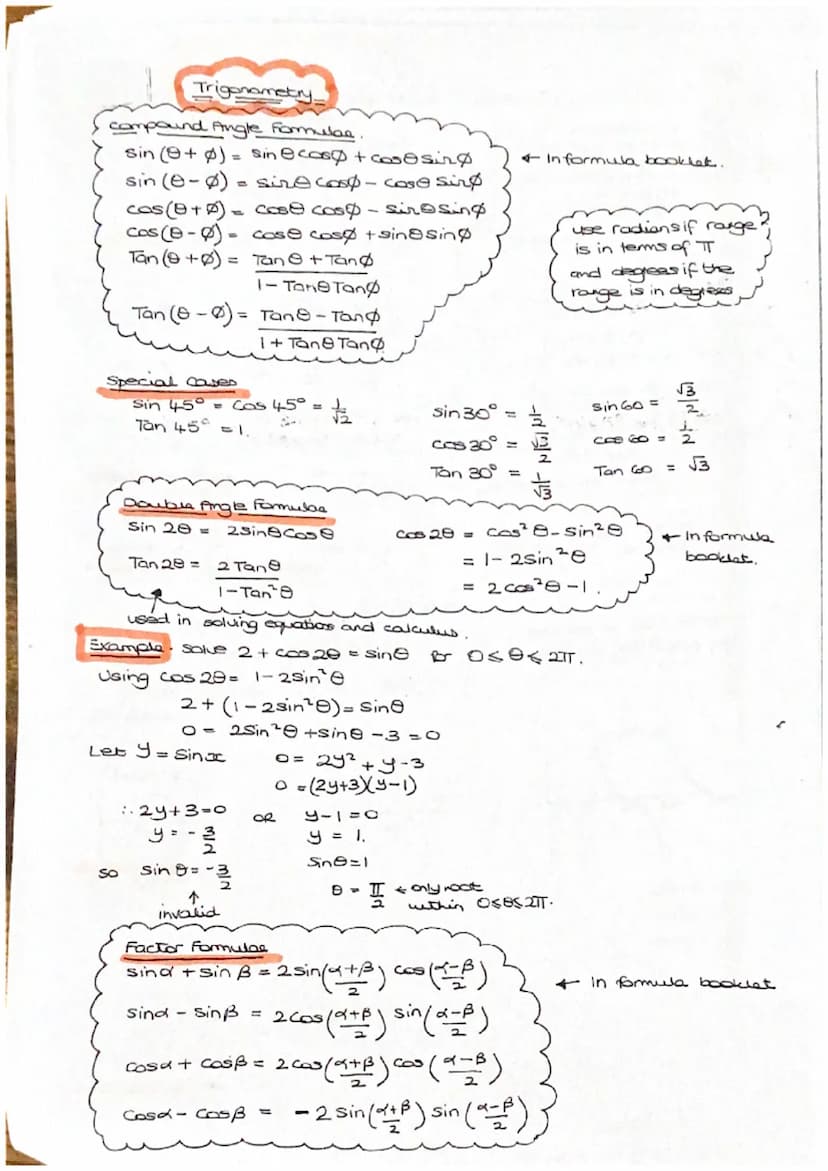 Trigonometry
Compound Angle Formulae.
sin (θ + ø) = sin θ cosø + cosθ sinø
← In formula booklet.
sin (θ - ø) = sinθ cosø - cosθ sinø
cos(θ + ø) = cosθ cosø - sinθ sinø
cos(θ - ø) = cosθ cosø + sinθ sinø
Tan (θ + ø) = Tan θ + Tanø / 1 - Tanθ Tanø
Tan (θ - ø) = Tanθ - Tanø / 1 + Tanθ Tanø
use radians if range
is in terms of π
and degrees if the
range is in degrees
Special Cases
sin 45° = cos 45° = 1/√2
Tan 45° = 1.
sin 30° = 1/2
cos 30° = √3/2
Tan 30° = 1/√3
sin 60 = √3/2
cos 60 = 1/2
Tan 60 = √3
Double Angle Formulae
sin 2θ = 2sinθ cos θ
Tan 2θ = 2 Tan θ / 1 - Tan²θ
cos 2θ = cos² θ - sin² θ
= 1 - 2sin² θ
= 2 cos² θ - 1.
← In formula
booklet.
used in solving equations and calculus.
Example. Solve 2 + cos 2θ = sin θ for 0 ≤ θ ≤ 2π.
Using cos 2θ = 1 - 2sin² θ
2 + (1 - 2sin² θ) = sin θ
0 = 2sin² θ + sin θ - 3 = 0
Let y = sin x
0 = 2y² + y - 3
0 = (2y+3)(y-1)
∴ 2y + 3 = 0 OR y - 1 = 0
y = - 3/2
y = 1.
so sin θ = - 3/2
↑
invalid
sin θ = 1
θ = π/2 ← only root
within 0 ≤ θ ≤ 2π.
Factor Formulae
sinα + sin β = 2 sin((α+β)/2) cos((α-β)/2)
← In formula booklet
sinα - sinβ = 2 cos((α+β)/2) sin((α-β)/2)
cosα + cosβ = 2 cos((α+β)/2) cos((α-β)/2)
cosα - cosβ = - 2 sin((α+β)/2) sin((α-β)/2)